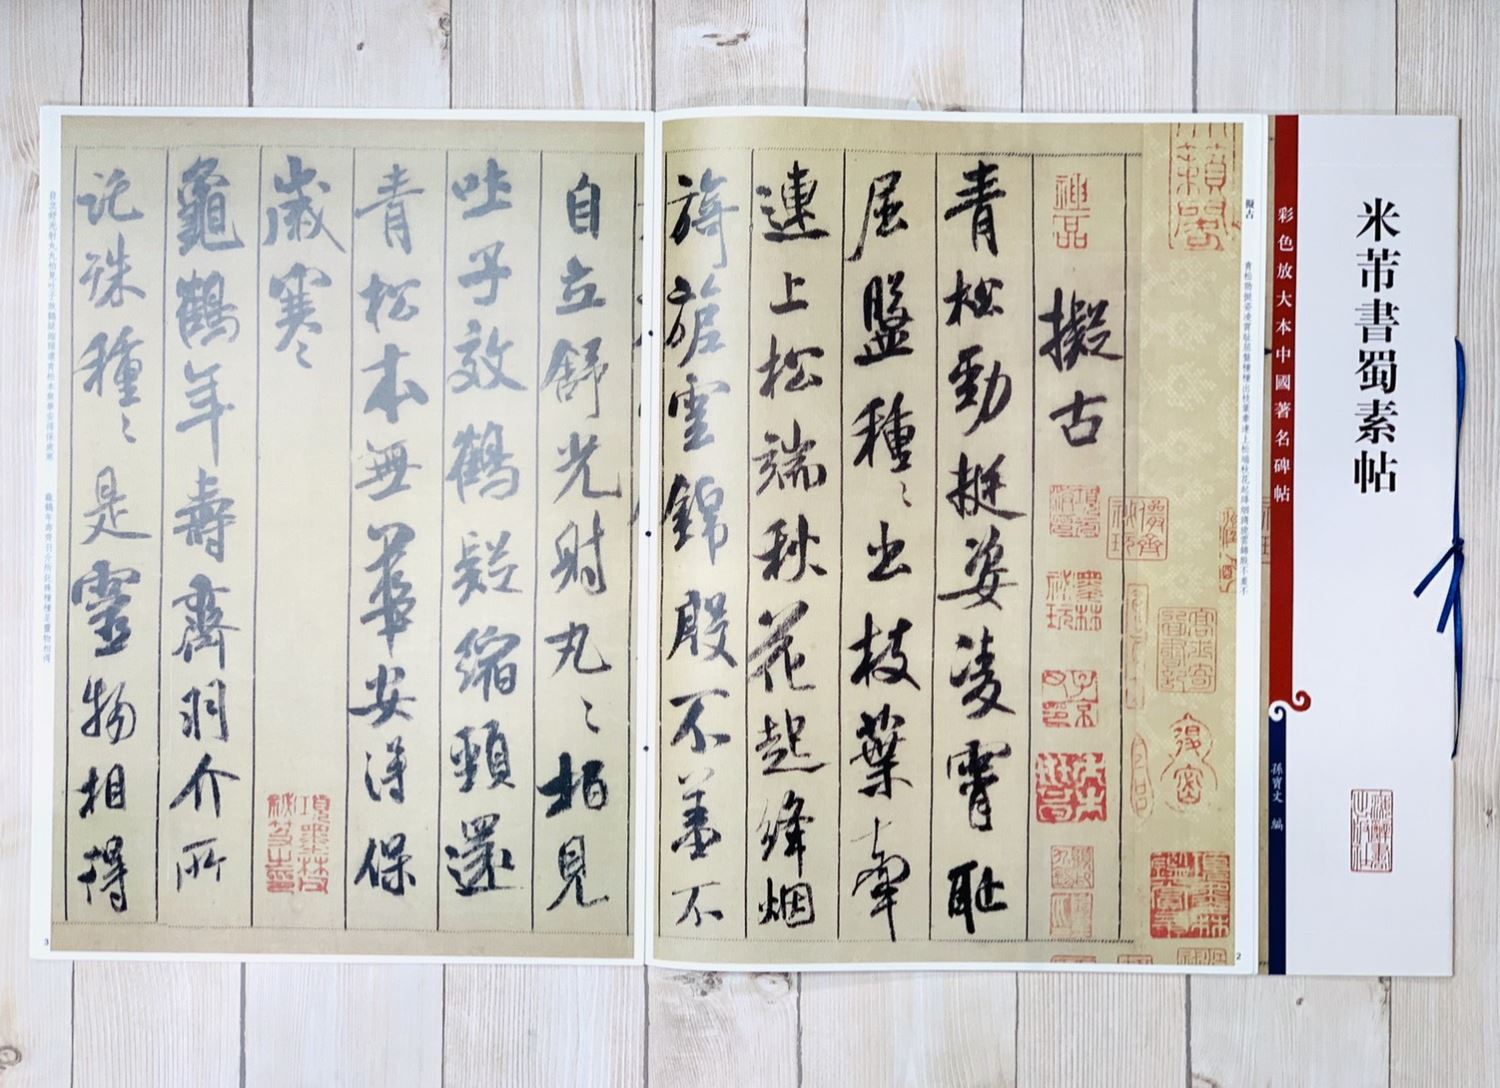 米芾書蜀素帖
彩色放大本中國著名碑帖
孫寶文 編
擬古 青松勁挺姿凌霄恥屈盤種種出枝葉牽連上松端秋花起絳烟旖旎雲錦殷不羞不
神品
墨林祕玩
擬古
青松勁挺姿凌霄恥
屈盤種〻出枝葉牽
連上松端秋花起絳烟
旖旎雲錦殷不羞不
2
自立舒光射丸〻柏見
吐子效鶴疑縮頸還
青松本無華安得保
歲寒〻
項墨林父祕笈之印
龜鶴年壽齊羽介所
託殊種〻是靈物相得
自立舒光射丸丸柏見吐子效鶴疑縮頸還青松本無華安得保歲寒 龜鶴年壽齊羽介所託殊種種是靈物相得
3